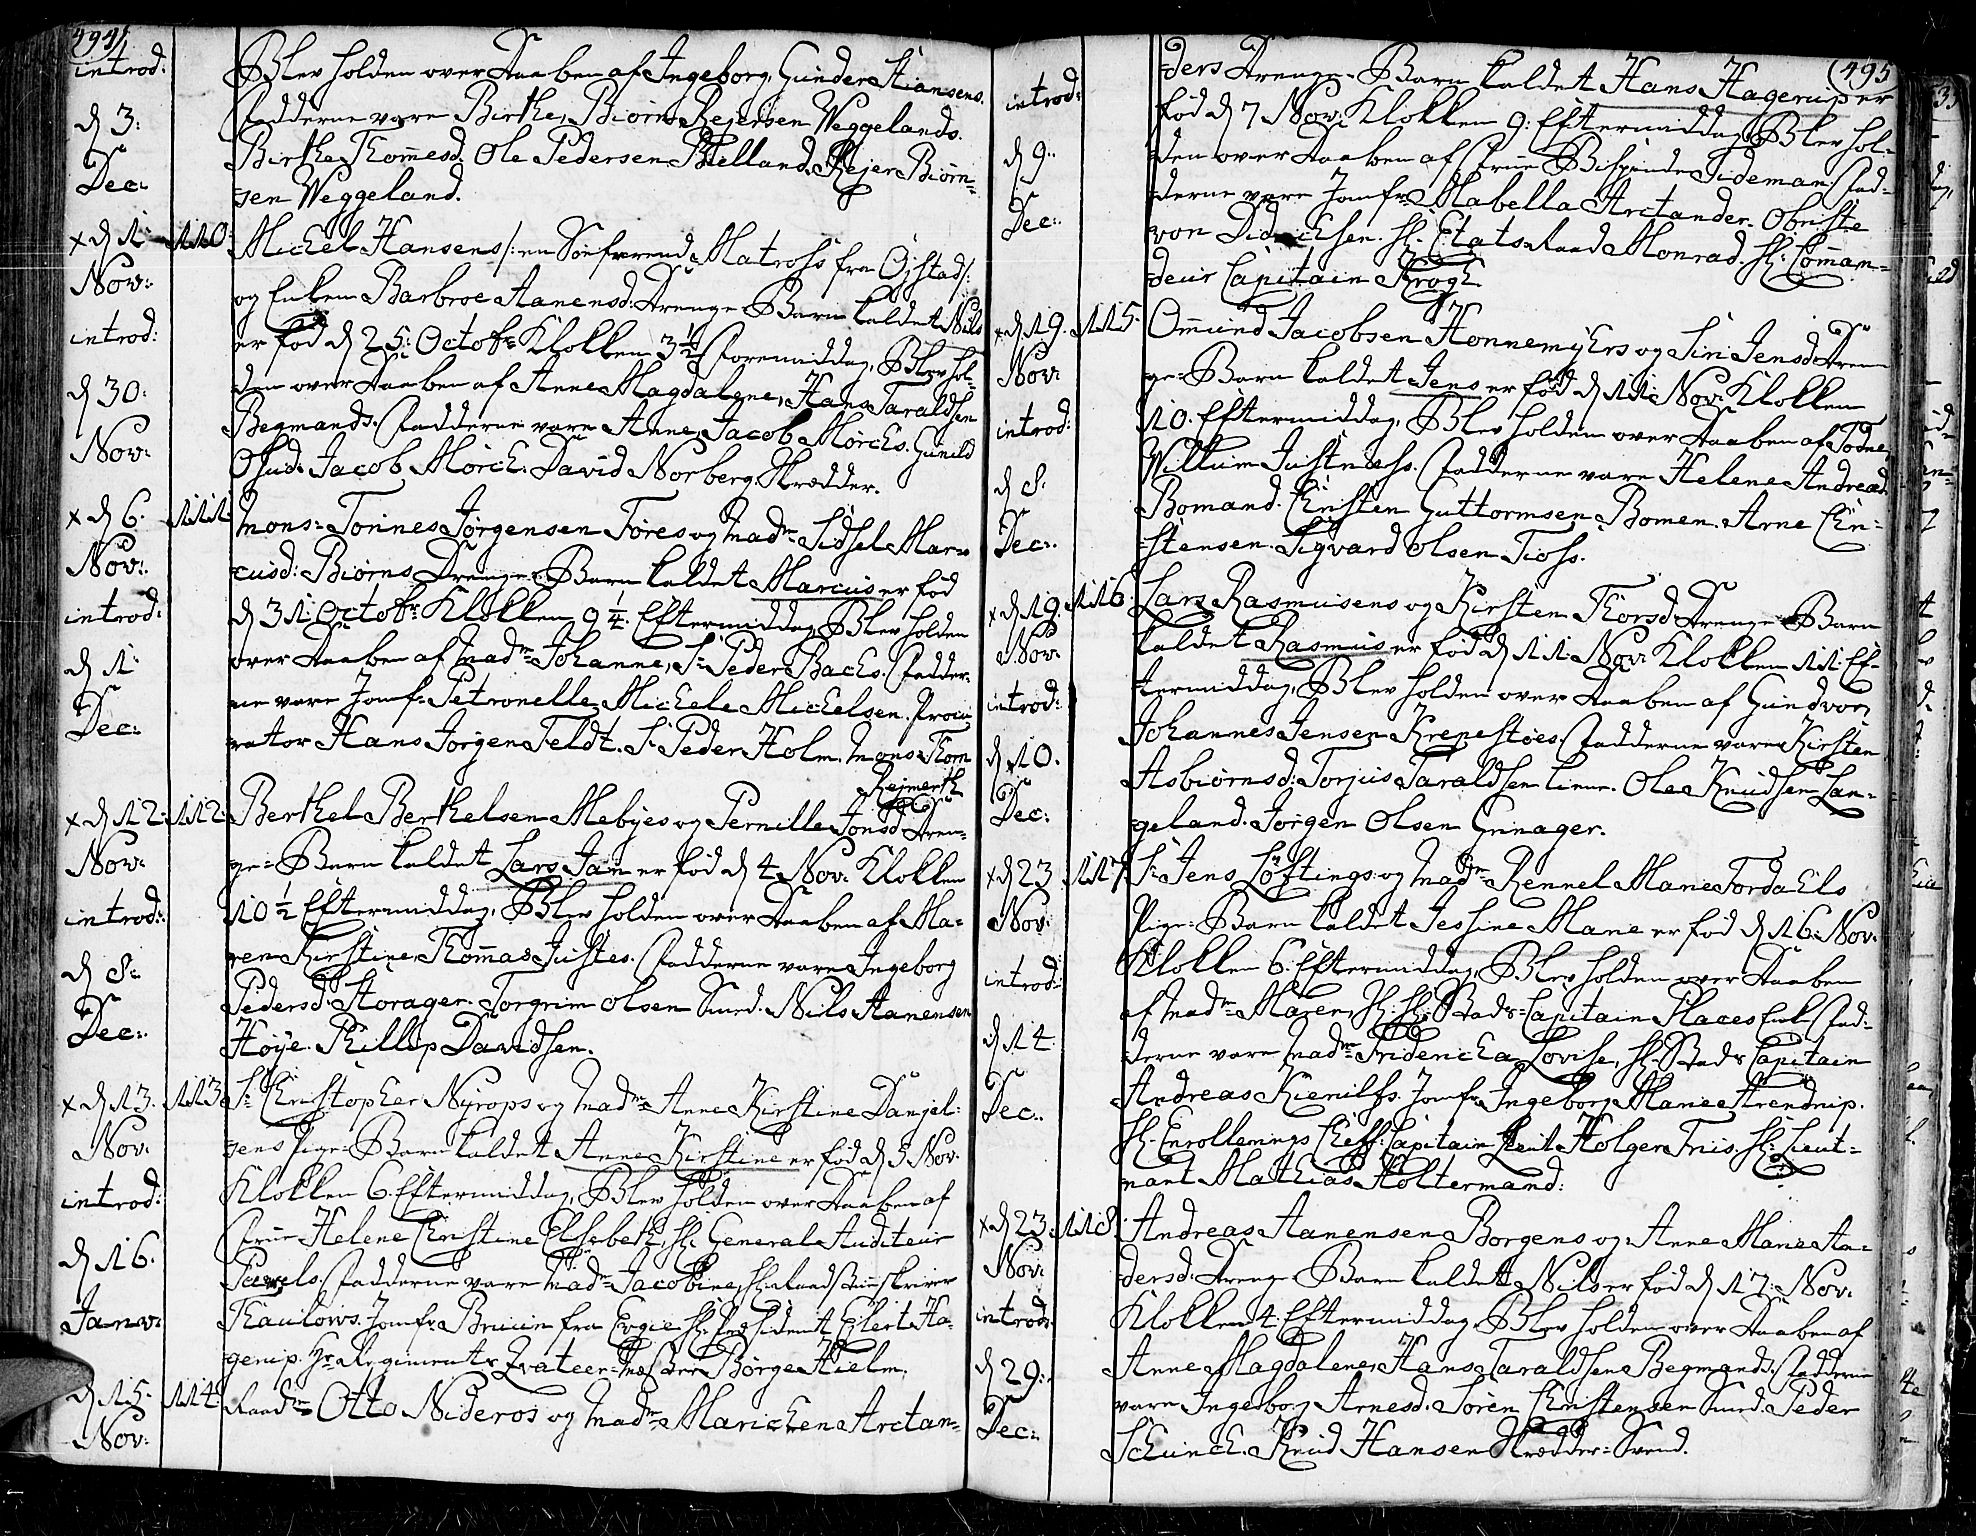 494
introd:
d 3:
Dec:
Blev holden over Daaben af Ingeborg Gunder Stiansens.
Fadderne vare Birthe, Biørn Rejersen Weggelands.
Birthe Thomesd. Ole Pedersen Stelland. Rejer Biørn-
sen Weggeland.
x d 1 110.
Nov:
introd:
d 30:
Nov:
Michel Hansens /: en Søefarende Matross fra Øjstad :/
og Enken Barbroe Aanensd: Drenge Barn kaldet Nils
er fød d 25: Octobr Klokken 3½ Formiddag, Blev hol-
den over Daaben af Anne Magdalene, Hans Taraldsen
Begmands. Fadderne vare Anne Jacob Mørchs. Gunild
Olsd. Jacob Mørch. David Norberg Skrædder.
x d 6. 111.
Nov:
introd:
d 1
Dec:
Mons: Tønnes Jørgensen Føres og Madm Sidsel Mar-
cusd: Biørns Drenge Barn kaldet Marcus er fød
d 31 Octobr Klokken 9¼. Eftermiddag Blev holden
over Daaben af Madm Johanne, Sr Peder Bachs. Fadder-
ne vare Jomfr Petronelle Michele Michelsen. Procu-
rator Hans Jørgen Feldt. Sr Peder Holm. Mons Thom
Rejmerth
x d 12: 112:
Nov:
introd:
d 8:
Dec:
Berthel Berthelsen Mebyes og Pernille Jonsd Dren-
ge-Barn kaldet Lars Jan er fød d 4 Nov: Klokken
10½ Eftermiddag, Blev holden over Daaben af Ma-
ren Kirstine, Thommas Justes. Fadderne vare Ingeborg
Pedersd. Storager. Torgrim Olsen Smed. Nils Aanensen
Høye. Phillip Davidsen.
x d 13. 113
Nov.
introd:
d 16.
Janv:
Sr Christopher Nyrops og Madm Anne Kirstine Danjel-
sens Pige-Barn kaldet Anne Kirstine er fød d 5 Nov.
Klokken 6. Eftermiddag, Blev holden over Daaben af
Frue Helene Christine Elsebeth, Hr General Auditeur
Pawels. Fadderne vare Madm Jacobine, Hr Raadstueskriver
Thaulows. Jomfr Bruun fra Evgie Hr Præsident Eilert Ha-
gerup. Hr Regiments Qvarteer-Mester Børge Hielm.
d 15. 114
Nov:
Raadm Otto Nideros og Madm Marichen Arctan-
495
introd:
d 9:
Dec:
ders Drenge-Barn kaldet Hans Hagerup er
fød d 7 Nov: Klokken 9: Eftermiddag, Blev hol-
den over Daaben af Frue Bispinde Tideman. Fad-
derne vare Jomfr Mabella Arctander. Obriste
von Didrichsen. Hr Etats-Raad Monrad. Hr Comman-
deur Capitain Krogh.
x d 19. 115.
Nov:
introd:
d 8.
Dec:
Omund Jacobsen Honnemyhrs og Siri Jensd: Dren-
ge-Barn kaldet Jens er fød d 11 Nov: Klokken
10. Eftermiddag, Blev holden over Daaben af Todne
Willum Justness. Fadderne vare Helene Andreæ
Bomand. Christen Guttormsen Bomen. Arne Chri-
stensen. Sigvard Olsen Tioss.
x d 19. 116.
Nov:
introd:
d 10.
Dec:
Lars Rasmusens og Kirsten Thorsd Drenge Barn
kaldet Rasmus er fød d 11 Nov: Klokken 11. Ef-
termiddag, Blev holden over Daaben af Gundvor,
Johannes Jensen Krepestøes. Fadderne vare Kirsten
Asbiørnsd: Torjus Taraldsen Lunn. Ole Knudsen Lan-
geland. Jørgen Olsen Grinager.
x d 23 117
Nov:
introd:
d 14
Dec.
Sr Jens Løftings og Madm Rennel Marie Tordahls
Pige-Barn kaldet Jessine Marie er fød d 16. Nov.
Klokken 6. Eftermiddag, Blev holden over Daaben
af Madm Maren, Hr Stads-Capitain Places Enk. Fad-
derne vare Madm Fridericha Lovise, Hr Stads Capitain
Andreas Kienilfs. Jomfr Ingeborg Marie Arendrup.
Hr Enrollerings Cheff Capitain Leut Holger Friis. Hr Lieut-
nant Mathias Holtermand.
x d 23. 118.
Nov.
introd:
d 29.
Dec:
Andreas Aanensen Borgens og Anne Marie An-
dersd. Drenge Barn kaldet Nils er fød d 17. Nov.
Klokken 4. Eftermiddag, Blev holden over Daaben af
Anne Magdalene, Hans Taraldsen Begmands. Fadderne
vare Ingeborg Arnesd. Søren Christensen Smed. Peder
Schunch. Knud Hansen Skrædder-Svend.